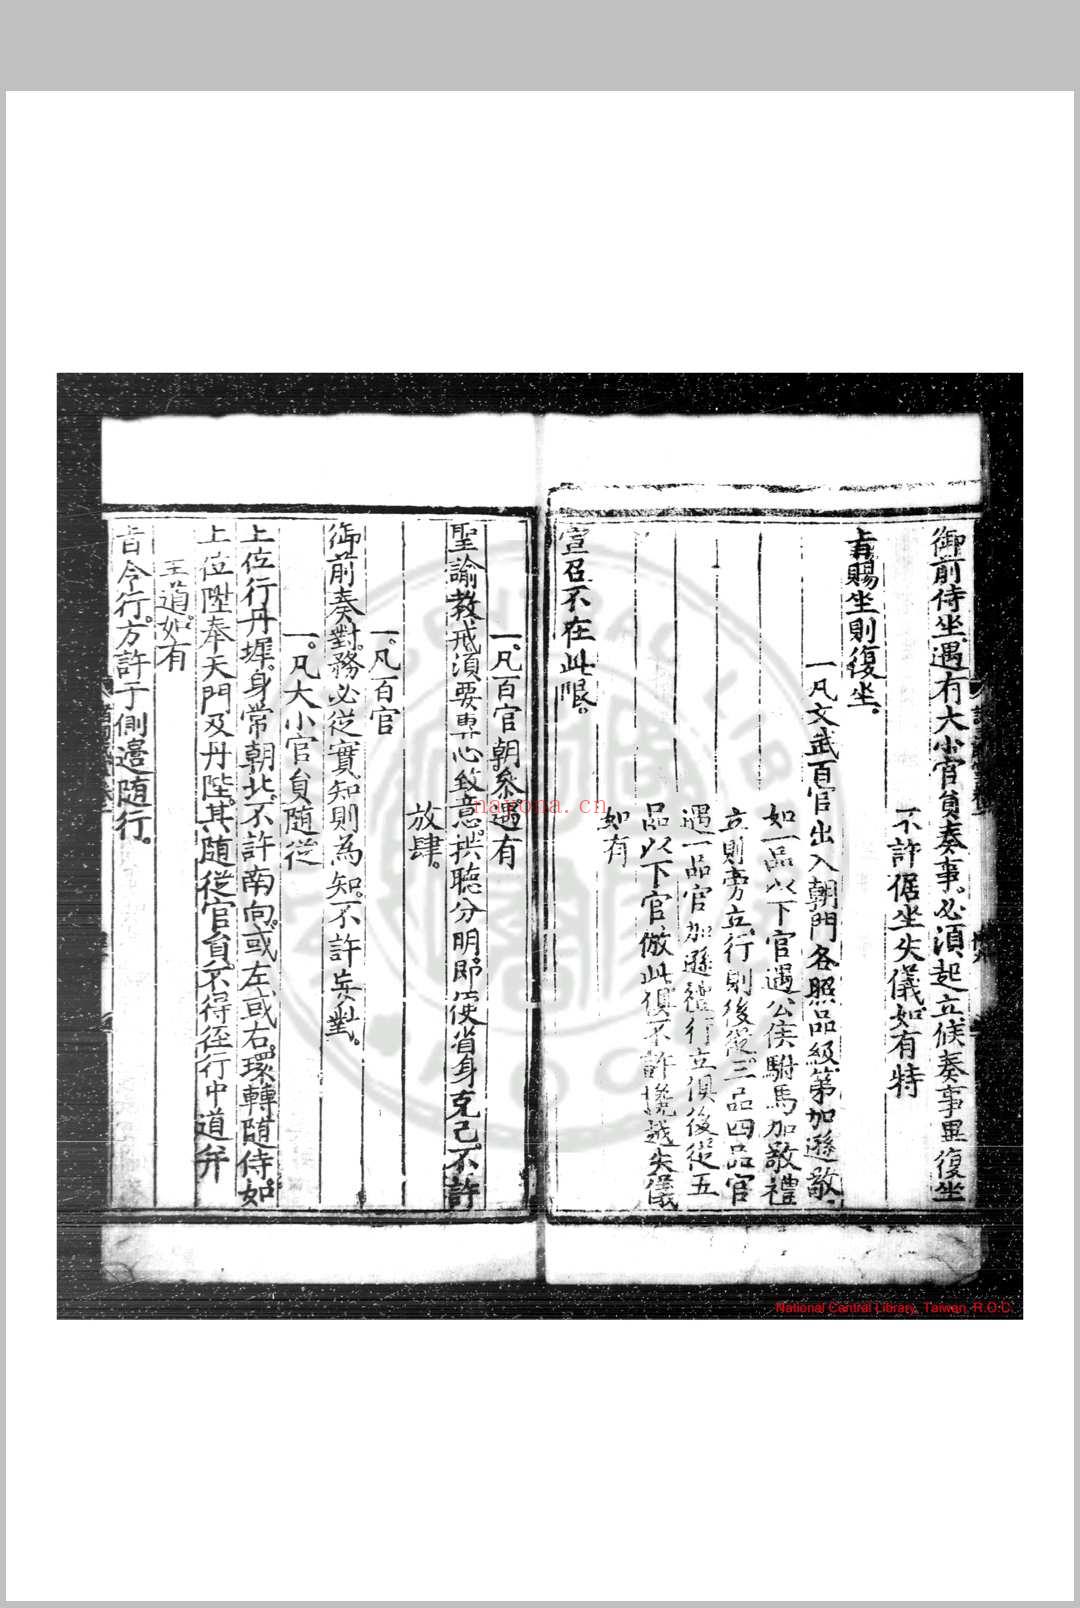 御前侍坐遇有大小官員奏事。必須起立候奏事畢復坐
不許倨坐失儀如有特
旨賜坐則復坐。
一凡文武百官出入朝門各照品級第加遜敬。
如一品以下官遇公侯駙馬加敬禮
立則旁立。行則後從。三品四品官
遇一品官加遜禮行立俱後從五
品以下官倣此俱不許攙越失儀
如有
宣召不在此限。
一。凡百官朝參遇有
聖諭教戒須要專心致意。拱聽分明。即便省身克己不許
放肆。
一。凡百官
御前奏對。務必從實知則為知。不許妄對。
一。凡大小官員隨從
上位行丹墀。身常朝北。不許南向。或左或右。環轉隨侍。如
上位陞奉天門及丹陛。其隨從官員。不得徑行中道并
王道。如有
旨令行。方許于側邊随行。
nayona.cn
National Central Library, Taiwan, R.O.C